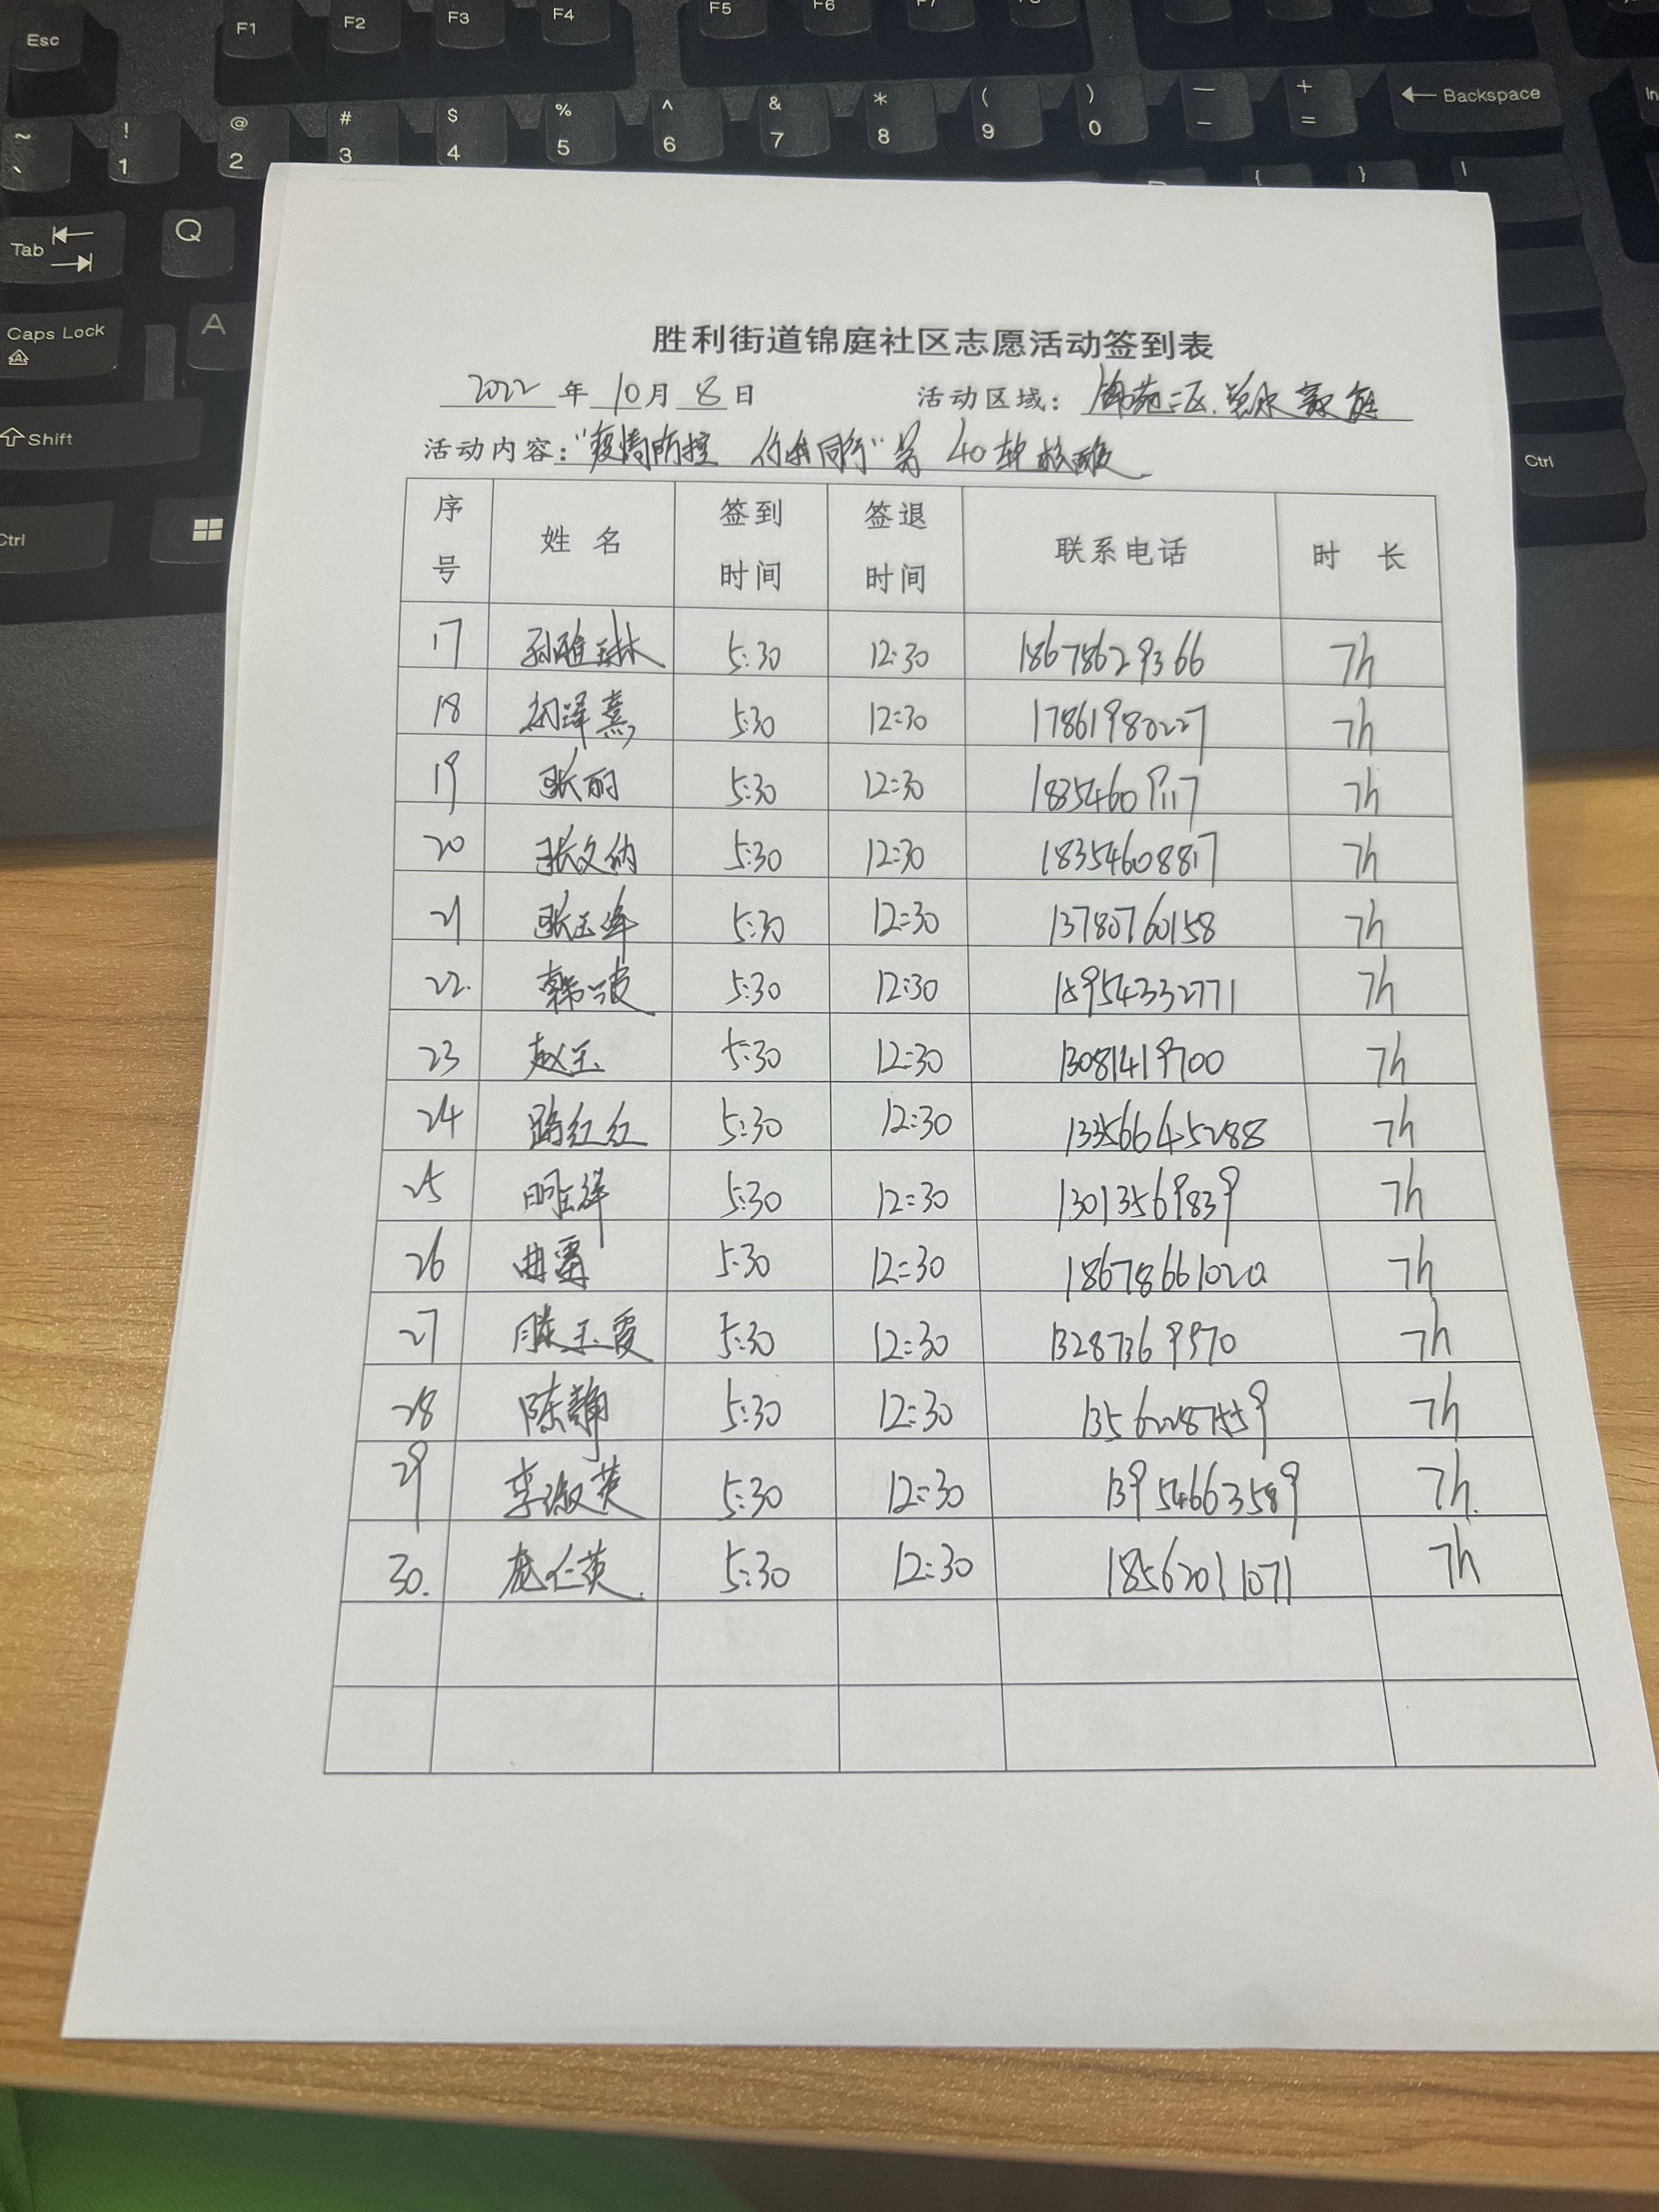 Esc F1 F2 F3 F4 F5 F6 F7
~ ! @ # $ % ^ & * ( ) — + ← Backspace
` 1 2 3 4 5 6 7 8 9 0 - =
Tab Q { } |
Caps Lock A
Shift Ctrl
Ctrl
胜利街道锦庭社区志愿活动签到表
2022年10月8日 活动区域:锦苑二区
活动内容:"疫情防控 你我同行"第40轮核酸
序号 姓名 签到时间 签退时间 联系电话 时长
17 孙雅琳 5:30 12:30 18678629366 7h
18 初泽熹 5:30 12:30 17861980227 7h
19 张丽 5:30 12:30 18354609117 7h
20 张文纳 5:30 12:30 18354608817 7h
21 张玉 5:30 12:30 13780760158 7h
22. 韩波 5:30 12:30 18954332771 7h
23 赵玉 5:30 12:30 13081419700 7h
24 路红红 5:30 12:30 13356645288 7h
25 5:30 12:30 13013569839 7h
26 曲雷 5:30 12:30 18678661020 7h
27 滕玉霞 5:30 12:30 13287369970 7h
28 陈静 5:30 12:30 13562287559 7h
29 李淑英 5:30 12:30 13954663589 7h.
30. 庞仁英. 5:30 12:30 18562011071 7h